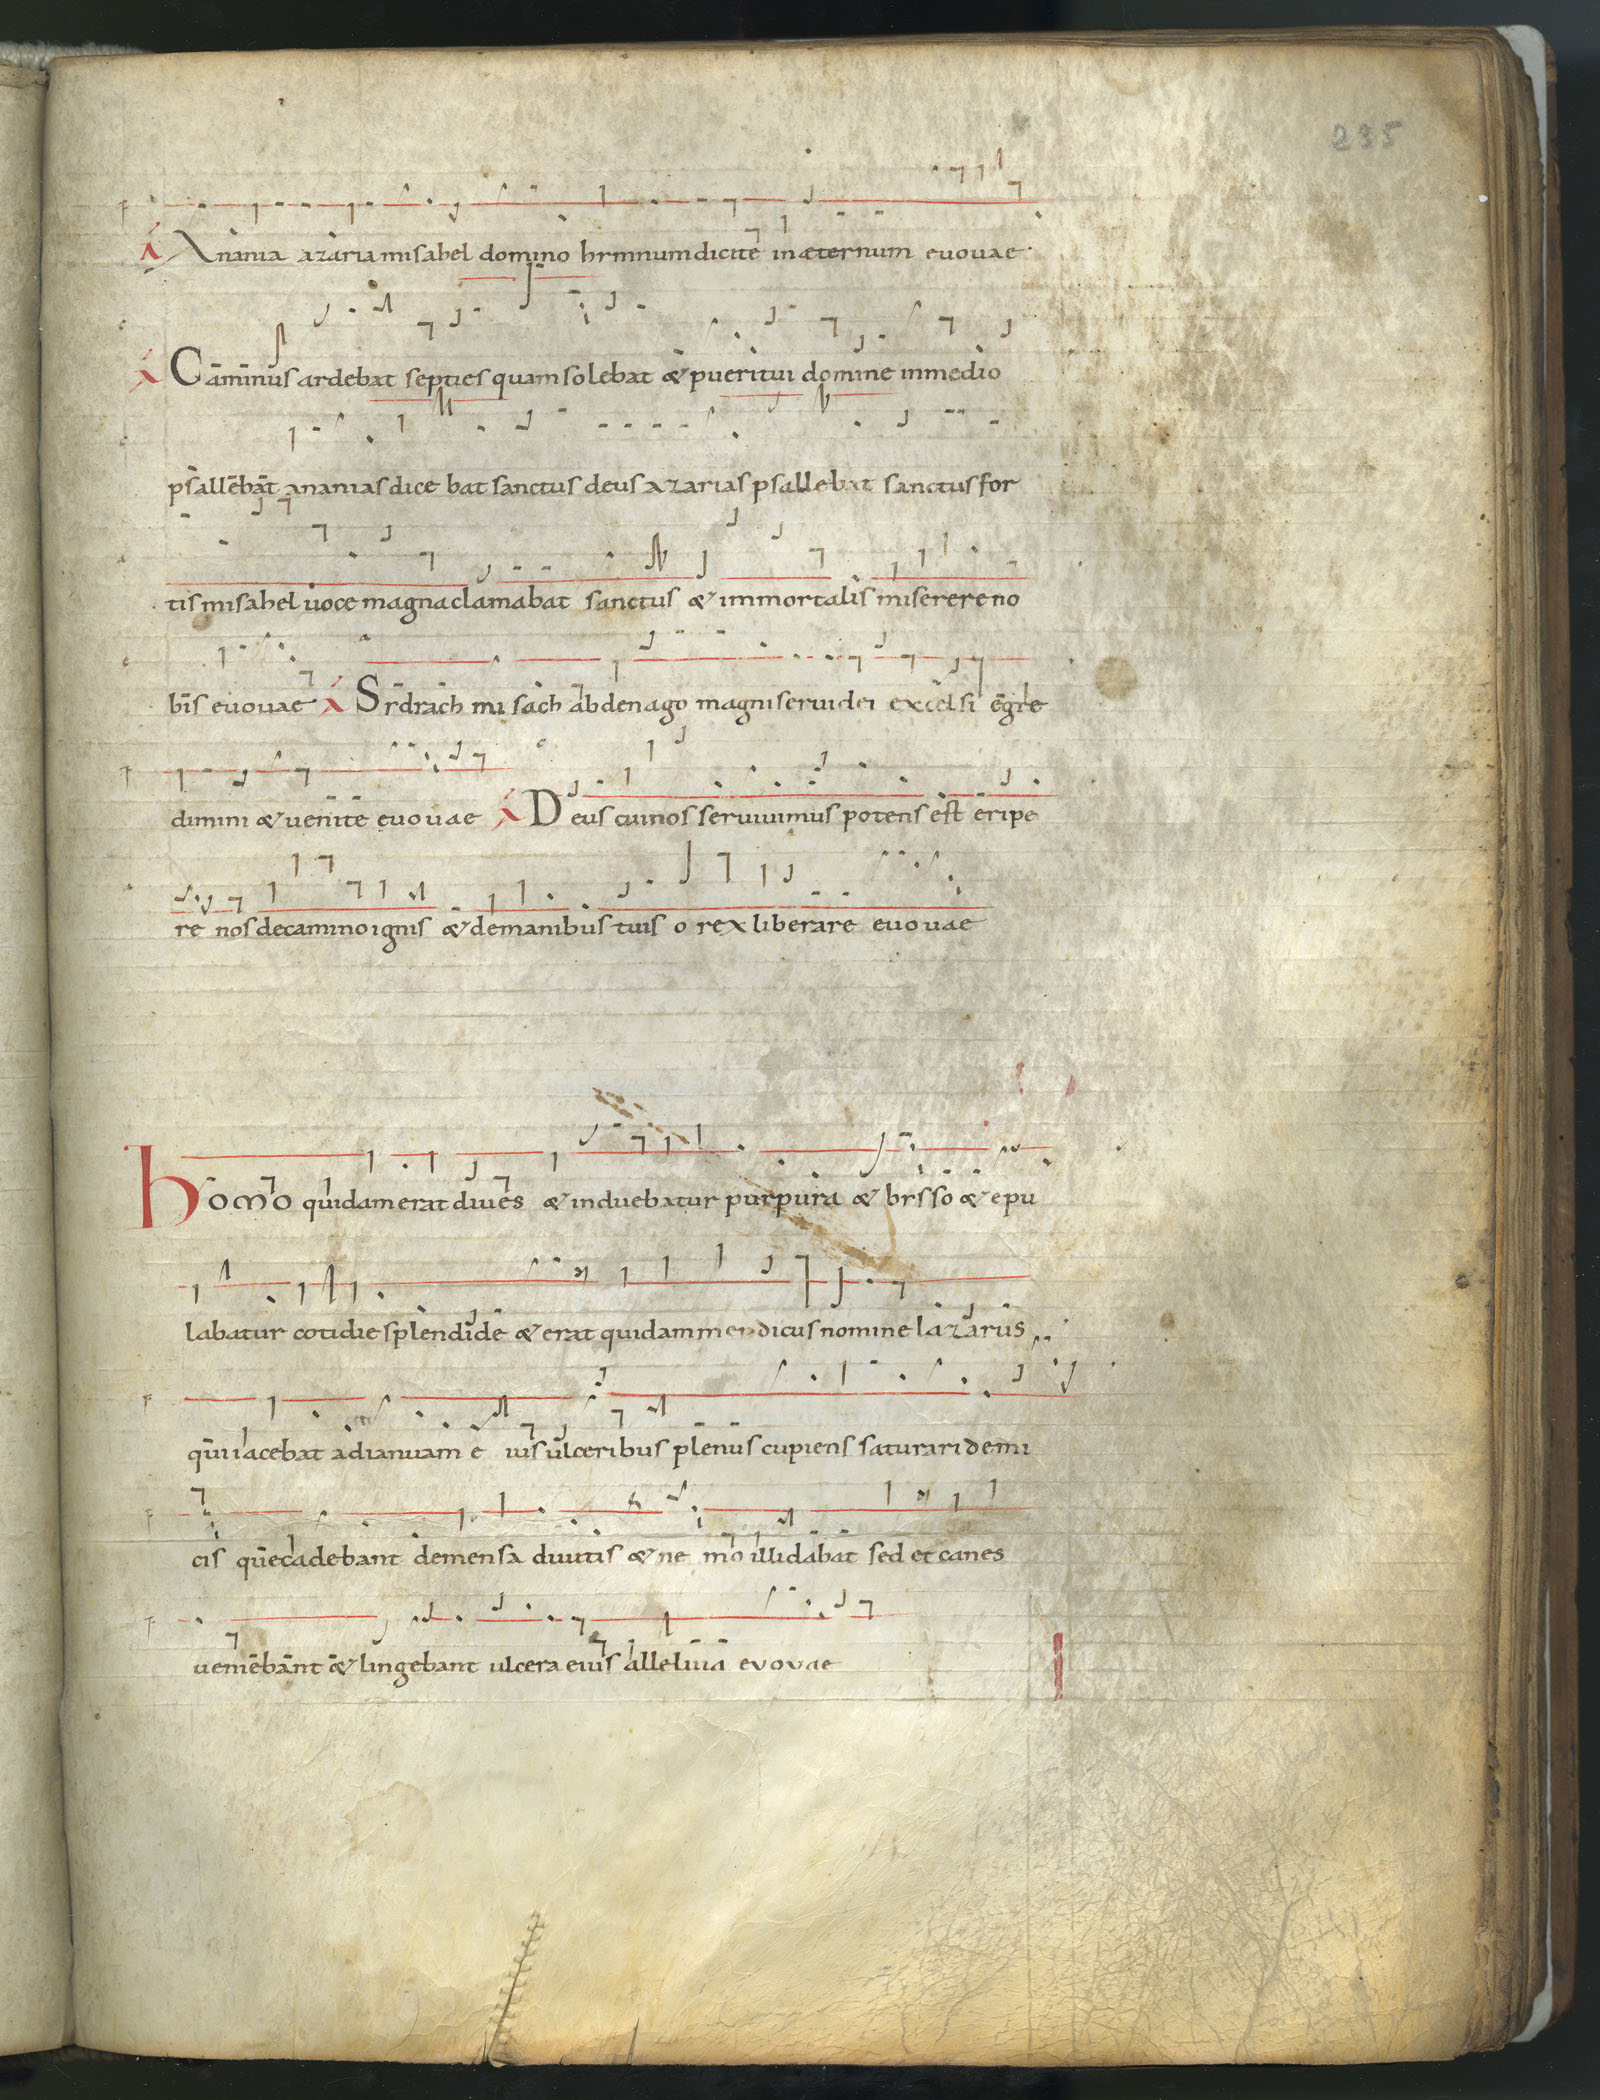 235
A Anania azaria misahel domino hymnum dicite in æternum euouae
A Caminus ardebat septies quam solebat & pueri tui domine in medio
psallebat ananias dicebat sanctus deus azarias psallebat sanctus for
tis misahel uoce magna clamabat sanctus & immortalis miserere no
bis euouae A Sydrach misach abdenago magni serui dei excelsi egre
dimini & uenite euouae A Deus cui nos seruiuimus potens est eripe
re nos de camino ignis & de manibus tuis o rex liberare euouae
Homo quidam erat diues & induebatur purpura & bysso & epu
labatur cotidie splendide & erat quidam mendicus nomine lazarus
qui iacebat ad ianuam eius ulceribus plenus cupiens saturari de mi
cis que cadebant de mensa diuitis & nemo illi dabat sed et canes
ueniebant & lingebant ulcera eius alleluia euouae